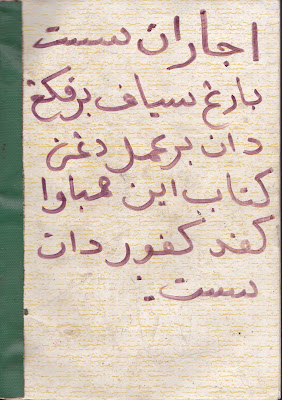 اجاران سست
بارڠ سياف برفكڠ
دان برعمل دڠن
كتاب اين ممباوا
كفد كفور دان
سست.